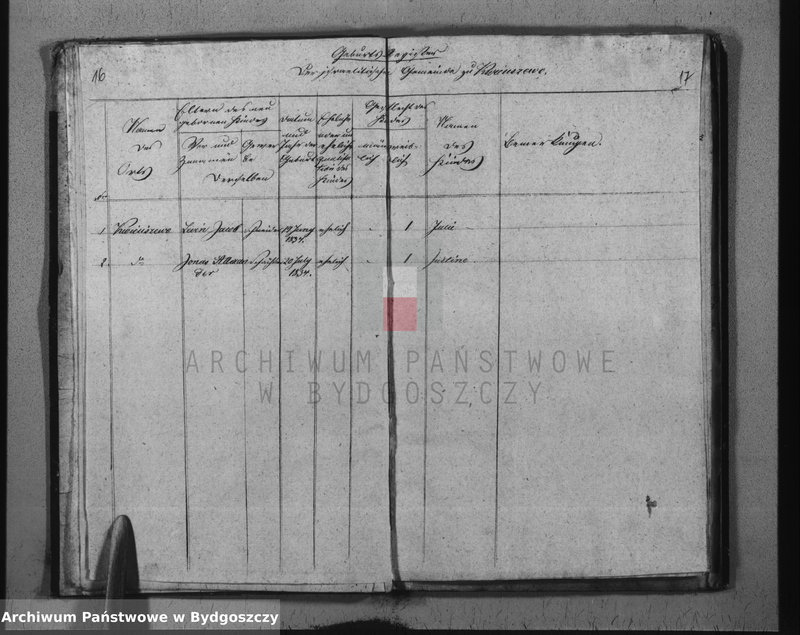 16
17
Geburts Register
Der israelitischen Gemeinde zu Kwieciszewo.
Namen des Orts
Eltern des neu gebornen Kindes
Vor und Zunamen
Gewerbe
Derselben
Datum und Jahr der Geburt
Geschlecht des Kindes
männlich
weiblich
Namen des Kindes
Bemerkungen.
1 Kwieciszewo Jacob 19 Juny 1834. ehelich - 1
2 do Jonas Alexander 20 July 1834. ehelich - 1 Justine
ARCHIWUM PAŃSTWOWE
W BYDGOSZCZY
Archiwum Państwowe w Bydgoszczy